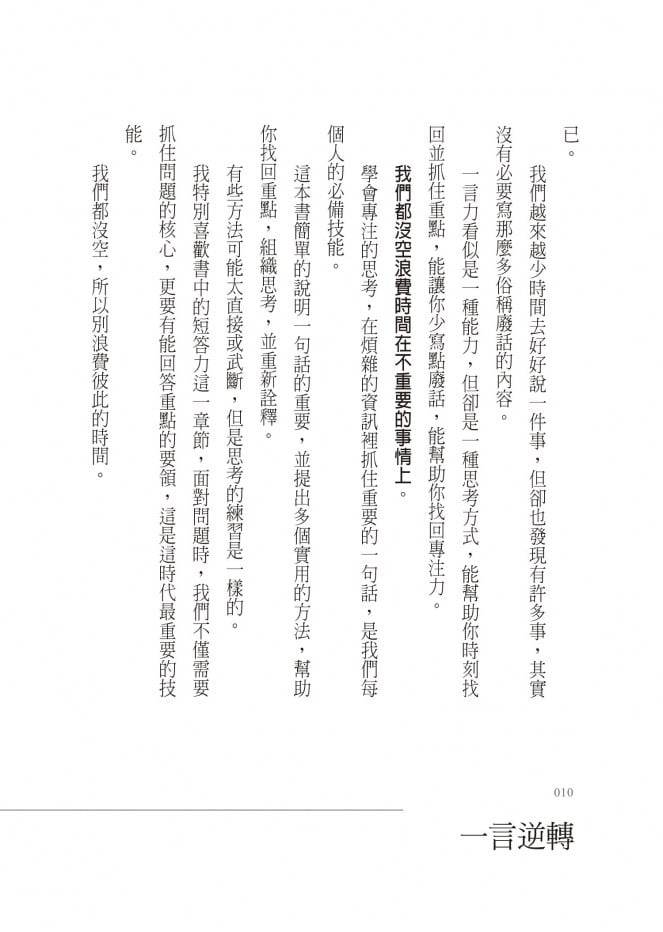 已。
我們越來越少時間去好好說一件事，但卻也發現有許多事，其實
沒有必要寫那麼多俗稱廢話的內容。
一言力看似是一種能力，但卻是一種思考方式，能幫助你時刻找
回並抓住重點，能讓你少寫點廢話，能幫助你找回專注力。
我們都沒空浪費時間在不重要的事情上。
學會專注的思考，在煩雜的資訊裡抓住重要的一句話，是我們每
個人的必備技能。
這本書簡單的說明一句話的重要，並提出多個實用的方法，幫助
你找回重點，組織思考，並重新詮釋。
有些方法可能太直接或武斷，但是思考的練習是一樣的。
我特別喜歡書中的短答力這一章節，面對問題時，我們不僅需要
抓住問題的核心，更要有能回答重點的要領，這是這時代最重要的技
能。
我們都沒空，所以別浪費彼此的時間。
010
一言逆轉